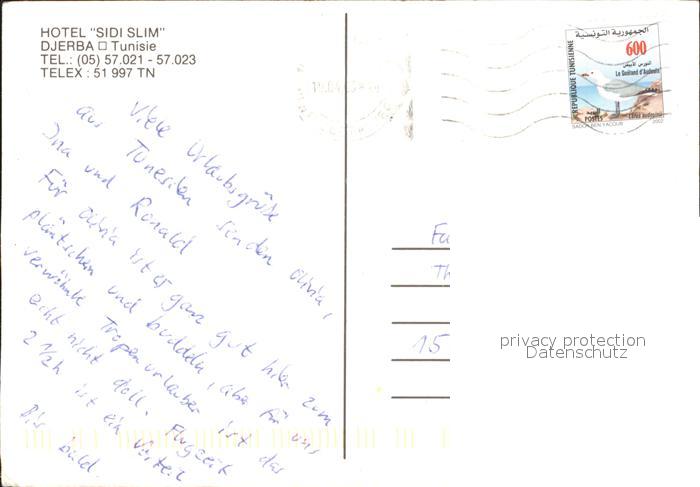 HOTEL "SIDI SLIM"
DJERBA □ Tunisie
TEL.: (05) 57.021 - 57.023
TELEX : 51 997 TN
الجمهورية التونسية
600
REPUBLIQUE TUNISIENNE
النورس الأبيض
Le Goéland d'Audouin
البريد
POSTES
Larus audouinii
SADOK BEN YACOUB 2002
Viele Urlaubsgrüße
aus Tunesien senden Olivia,
Ina und Ronald
Für Olivia ist es ganz gut hier zum
plantschen und buddeln, aber für uns
verwöhnte Tropenurlauber ist das
echt nicht doll. Flugzeit
2 1/2h ist ein Vorteil
Bis bald.
Fu
Th
15
privacy protection
Datenschutz